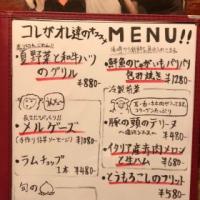 コレがオレ達のオススメ MENU!!
夏野菜と和牛ハツ
のグリル
¥880-
メルゲーズ
(手作り羊ソーセージ)
¥1080-
ラムチョップ
1本 ¥480-
旬の
鮮魚のじゃがいもパリパリ
包み焼き ¥1280-
冷製前菜
豚の頭のテリーヌ
¥480-
イタリア産赤肉メロン
と生ハム ¥680-
とうもろこしのフリット
¥580-